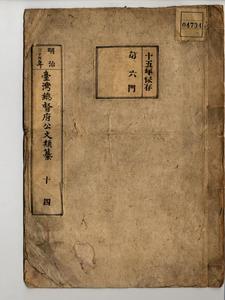 04734
十五年保存
第六門
明治
臺灣總督府公文類纂 十四